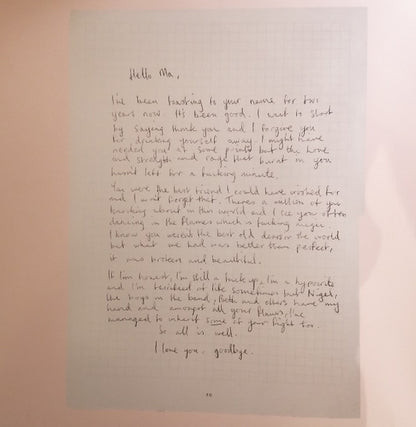 Hello Ma,
I've been toasting to your name for two
years now. It's been good. I want to start
by saying thank you and I forgive you
for drinking yourself away. I might have
needed you at some points but the love
and strength and rage that burnt in you
hasn't left for a fucking minute.
You were the best friend I could have wished for
and I won't forget that. There's a million of you
knocking about in this world and I see you often
dancing in the flames which is fucking magic.
I know you weren't the best old dear in the world
but what we had was better than perfect,
it was broken and beautiful.
If I'm honest, I'm still a fuck up, I'm a hypocrite
and I'm terrified of life sometimes but Nigel,
the boys in the band, Beth and others have my
hand and amongst all your flaws, I've
managed to inherit some of your light too.
So all is well.
I love you. goodbye.